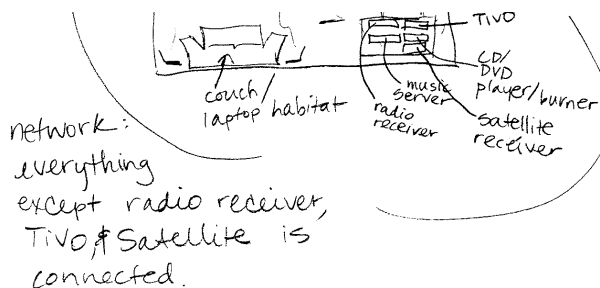 TiVO
CD/
DVD
player/burner
couch
laptop/habitat
music
server
radio
receiver
satellite
receiver
network:
everything
except radio receiver,
TiVO, & Satellite is
connected.